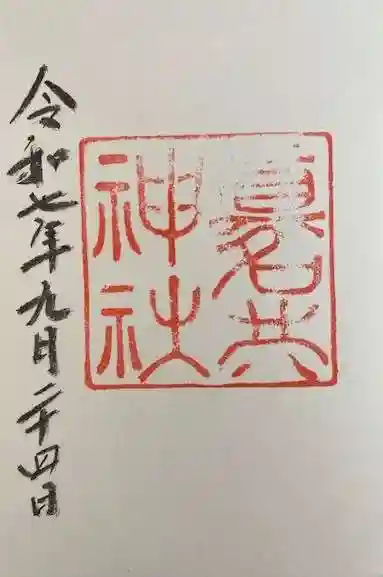 神社
令和七年九月二十四日